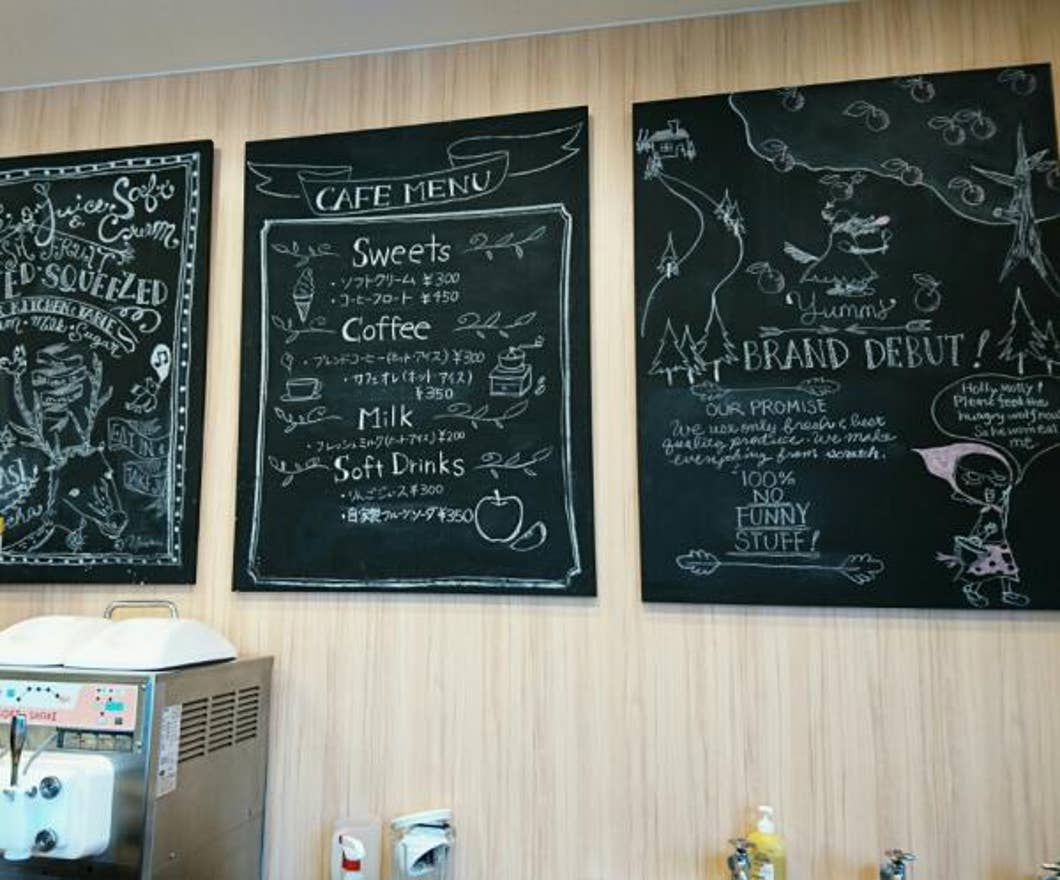 Juice
&
Soft
Cream
SQUEEZED
KITCHEN TABLE
Milk · Sugar
EAT IN
CAFE MENU
Sweets
・ソフトクリーム ¥300
・コーヒーフロート ¥450
Coffee
・ブレンドコーヒー(ホット・アイス) ¥300
・カフェオレ(ホット アイス)
¥350
Milk
・フレッシュミルク(ホット・アイス) ¥200
Soft Drinks
・りんごジュース ¥300
・自家製フルーツソーダ ¥350
Yummy
BRAND DEBUT!
OUR PROMISE
We use only fresh & best
quality produce. We make
everything from scratch.
100%
NO
FUNNY
STUFF!
Holly Molly!
Please feed the
hungry wolf
So he won't eat
me